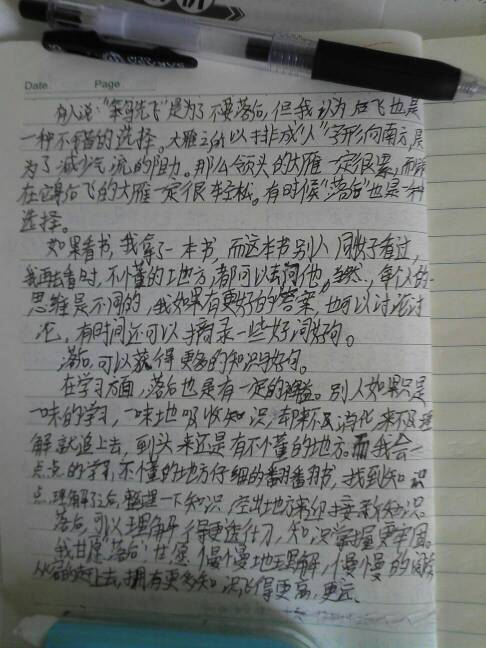 Date Page
有人说:“笨鸟先飞”是为了不要落后,但我认为后飞也是
一种不错的选择。大雁之所以排成“人”字形向南方,是
为了减少气流的阻力。那么领头的大雁一定很累,而
在它身后飞的大雁一定很轻松。有时候“落后”也是一种
选择。
如果看书,我拿了一本书,而这本书别人刚好看过,
我再去看时,不懂的地方,都可以去问他。当然,每个人的
思维是不同的,我如果有更好的答案,也可以讨论讨
论。有时间还可以摘录一些好词好句。
落后,可以获得更多的知识与好句。
在学习方面,落后也是有一定的。别人如果只是
一味的学习,一味地吸收知识,却来不及消化,来不及理
解就追上去,到头来还是有不懂的地方。而我会一
点点的学习,不懂的地方仔细的翻翻书,找到知识
点,理解了之后,整理一下知识,空出地方来迎接新知识。
落后,可以理解得更透彻,知识掌握更牢固。
我甘愿“落后”,甘愿慢慢地理解,慢慢的阅读
从容的赶上去,拥有更多知识,飞得更高,更远。